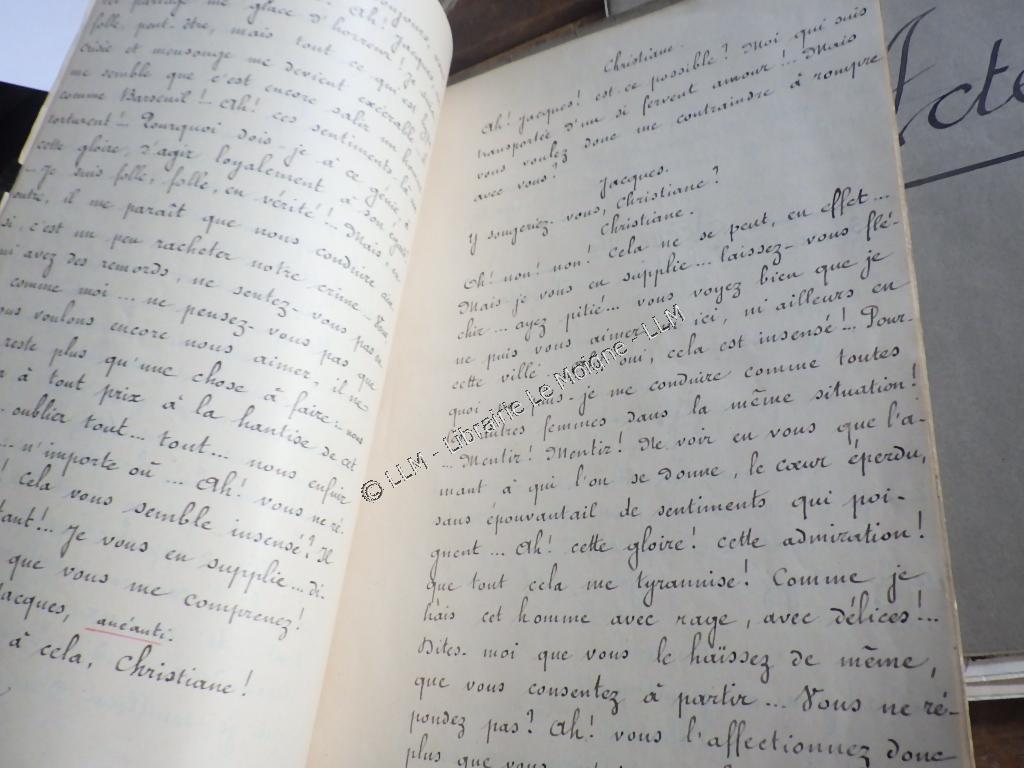 me glace d'horreur! Je
folle, peut-être, mais tout ce qui est
et mensonge me devient exécrable
me semble que c'est encore salir un
comme Barseuil!.. Ah! ces sentiments
torturent!.. Pourquoi dois-je à ce génie, à
cette gloire, d'agir loyalement à son
.. Je suis folle, folle, en vérité!.. Mais, en
outre, il me paraît que nous conduire
si, c'est un peu racheter notre crime... Vous
qui avez des remords, ne sentez-vous pas
comme moi... ne pensez-vous pas que
vous voulons encore nous aimer, il ne
reste plus qu'une chose à faire:
à tout prix à la hantise de cet
oublier tout... tout... nous enfuir
... n'importe où... Ah! vous ne ré-
! Cela vous semble insensé? Il
tant!.. Je vous en supplie... di-
que vous me comprenez!
Jacques, anéanti.
à cela, Christiane!
Christiane.
Ah! Jacques! est-ce possible? Moi qui suis
transportée d'un si fervent amour!.. Mais
vous voulez donc me contraindre à rompre
avec vous?
Jacques.
Y songeriez-vous, Christiane?
Christiane.
Oh! non! non! Cela ne se peut, en effet...
Mais je vous en supplie... laissez-vous flé-
chir... ayez pitié... vous voyez bien que je
ne puis vous aimer ici, ni ailleurs en
cette ville oui, cela est insensé!.. Pour-
quoi je me conduire comme toutes
autres femmes dans la même situation!
... Mentir! Mentir! Ne voir en vous que l'a-
mant à qui l'on se donne, le cœur éperdu,
sans épouvantail de sentiments qui poi-
gnent... Ah! cette gloire! cette admiration!
que tout cela me tyrannise! Comme je
hais cet homme avec rage, avec délices!..
Dites-moi que vous le haïssez de même,
que vous consentez à partir... Vous ne ré-
pondez pas? Ah! vous l'affectionnez donc
plus que
Acte
© LLM - Librairie Le Moigne - LLM